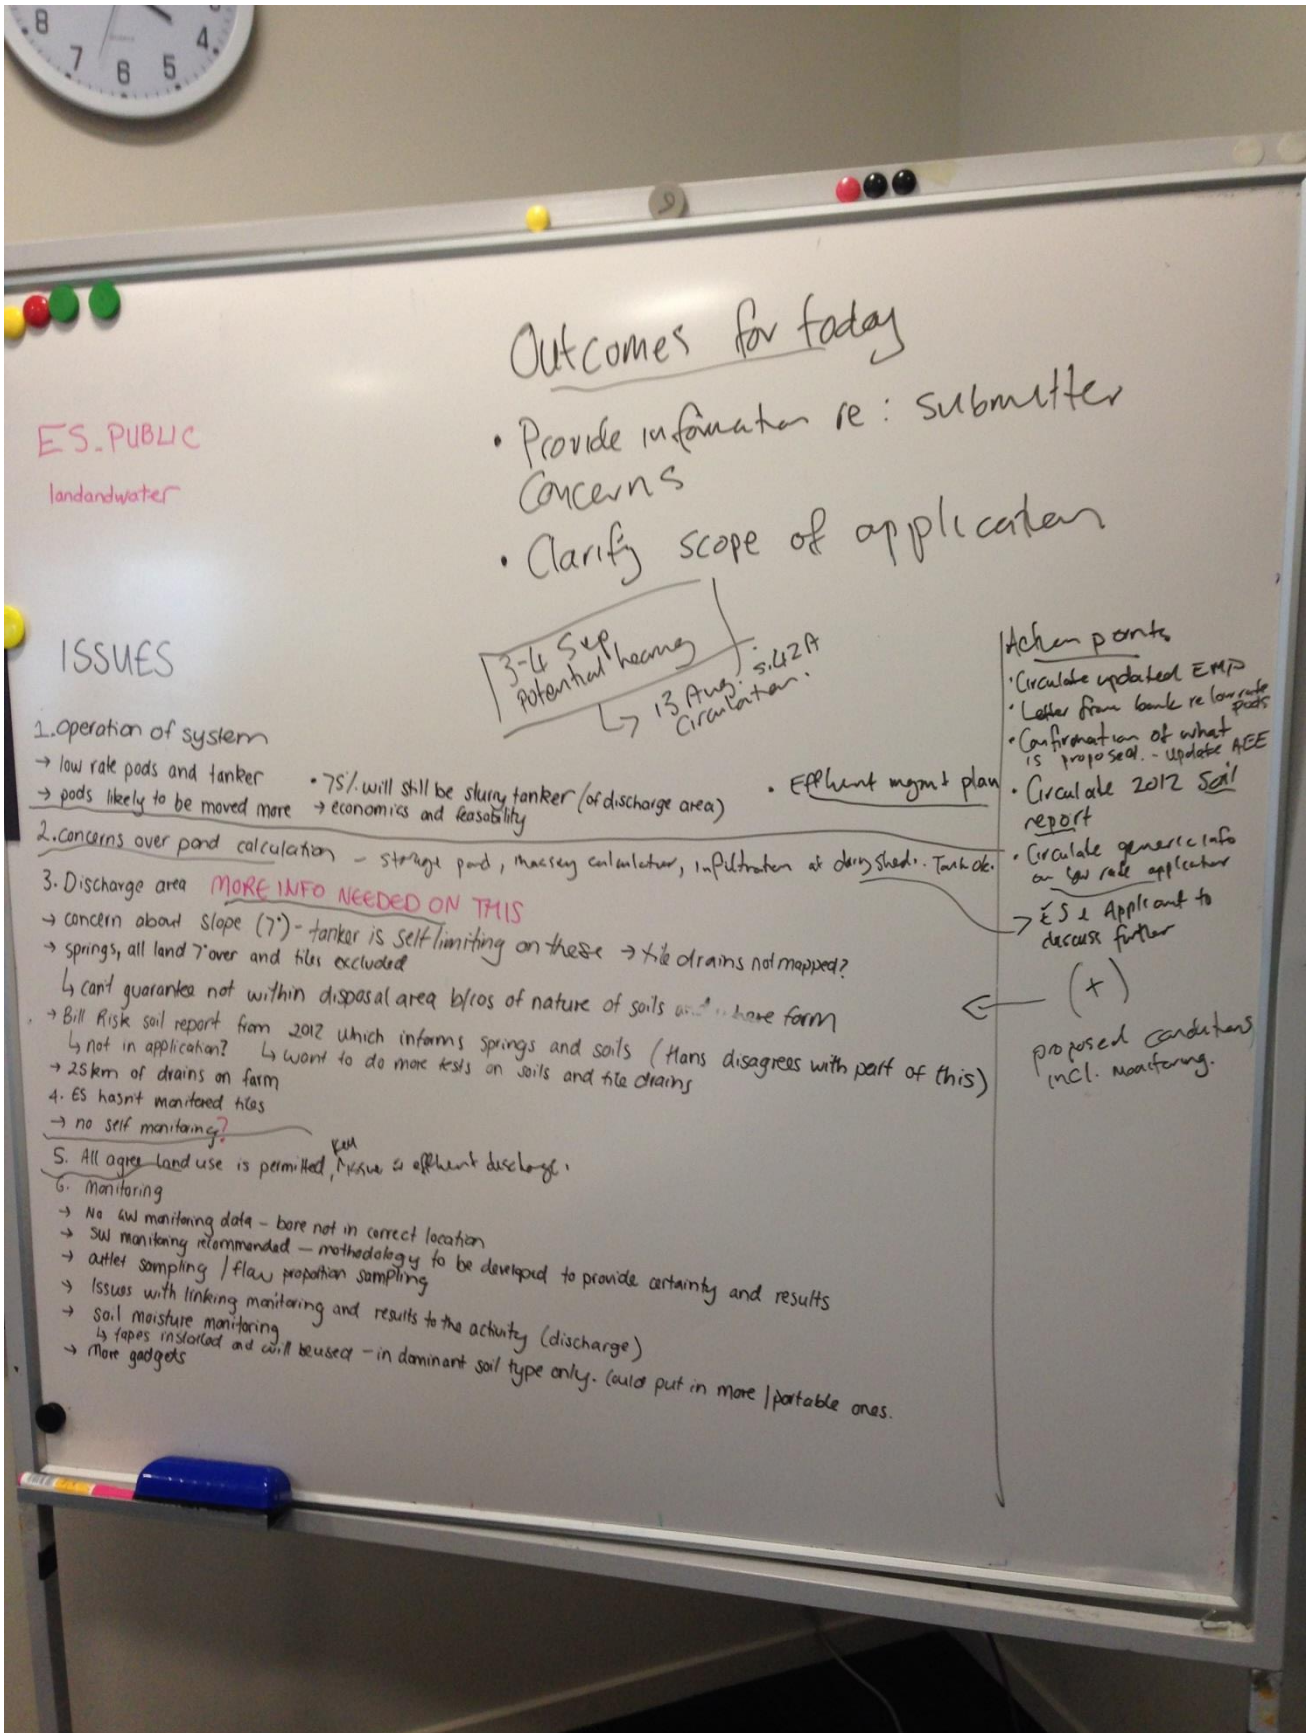 8
7
6
5
4
Outcomes for today
• Provide information re: submitter
concerns
• Clarify scope of application
ES_PUBLIC
landandwater
3-4 Sep
Potential hearing
↳ 13 Aug. s.42A
Circulation.
ISSUES
1. Operation of system
→ low rate pods and tanker
→ pods likely to be moved more
• 75% will still be slurry tanker (of discharge area)
→ economics and feasability
• Effluent mgmt plan
2. concerns over pond calculation – storage pond, massey calculator, infiltration at dairy shed. Tank ok.
3. Discharge area MORE INFO NEEDED ON THIS
→ concern about slope (7°) - tanker is self limiting on these → tile drains not mapped?
→ springs, all land 7° over and tiles excluded
↳ can't guarantee not within disposal area b/cos of nature of soils and where form
→ Bill Risk soil report from 2012 which informs springs and soils (Hans disagrees with part of this)
↳ not in application? ↳ want to do more tests on soils and tile drains
→ 25km of drains on farm
4. ES hasn't monitored tiles
→ no self monitoring?
5. All agree land use is permitted, key issue is effluent discharge.
6. Monitoring
→ No GW monitoring data – bore not in correct location
→ SW monitoring recommended – methodology to be developed to provide certainty and results
→ outlet sampling / flow proportion sampling
→ Issues with linking monitoring and results to the activity (discharge)
→ soil moisture monitoring
↳ tapes installed and will be used – in dominant soil type only. Could put in more / portable ones.
→ More gadgets
Action points
• Circulate updated EMP
• Letter from bank re low rate
pods
• Confirmation of what
is proposed. - update AEE
• Circulate 2012 Soil
report
• Circulate generic info
on low rate application
→ ES & Applicant to
discuss further
← (+)
proposed conditions
incl. monitoring.